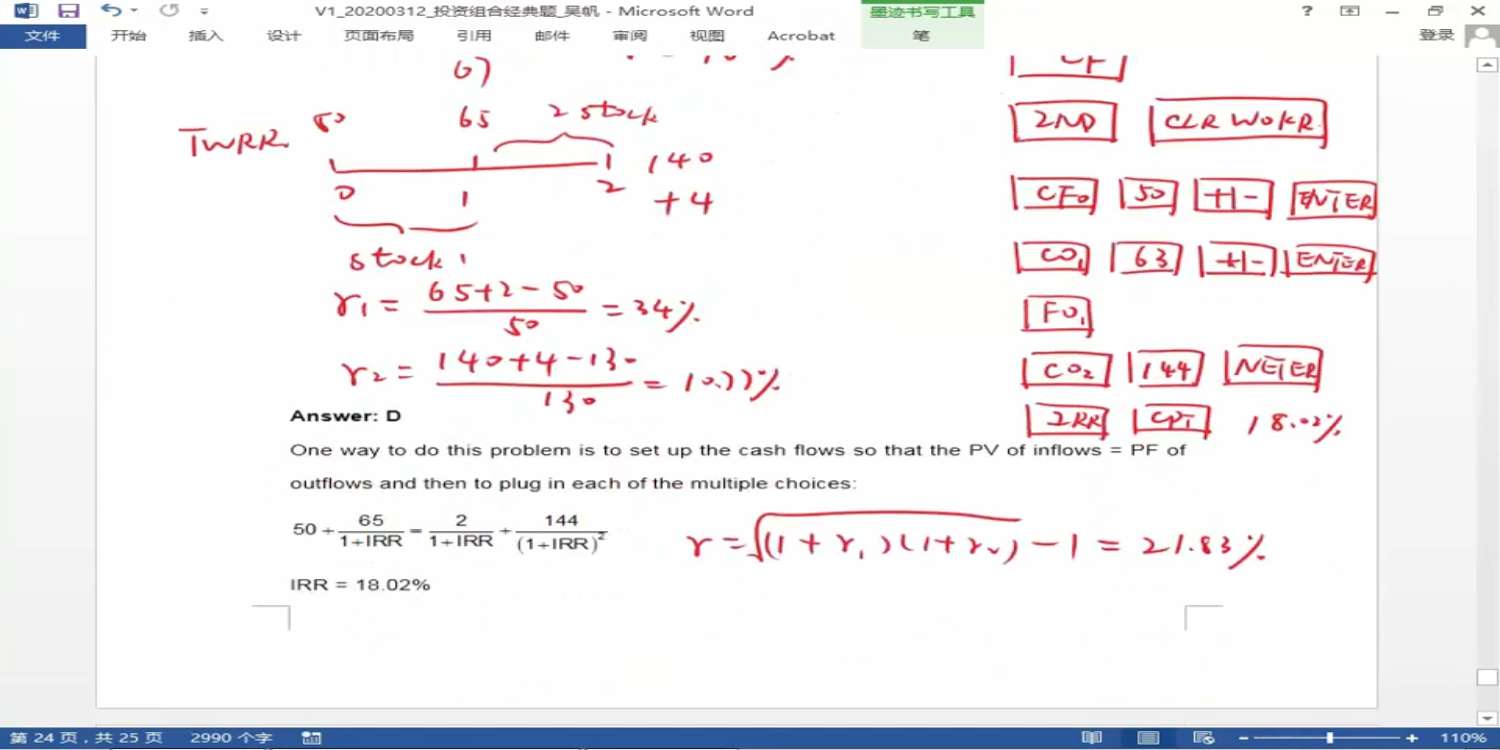 V1_20200312_投资组合经典题_吴帆 - Microsoft Word
墨迹书写工具
?
文件 开始 插入 设计 页面布局 引用 邮件 审阅 视图 Acrobat 笔 登录
67
TWRR 50 65 2 stock
140
0 1 2 +4
stock 1
r₁ = (65+2-50)/50 = 34%
r₂ = (140+4-130)/130 = 10.77%
CF
2ND CLR WOKR
CF₀ 50 +/- ENTER
CO₁ 63 +/- ENTER
FO₁
CO₂ 144 NETER
IRR CPT 18.02%
Answer: D
One way to do this problem is to set up the cash flows so that the PV of inflows = PF of
outflows and then to plug in each of the multiple choices:
50 + 65/(1+IRR) = 2/(1+IRR) + 144/(1+IRR)²
r = √(1+r₁)(1+r₂) - 1 = 21.83%
IRR = 18.02%
第 24 页，共 25 页 2990 个字 110%